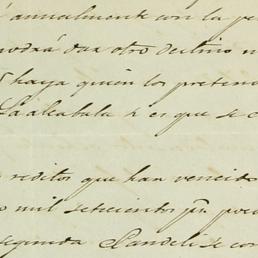 annualmente con la pe
podrá dar otro destino n
haya quien los pretend
La alcabala
es que se c
reditos que han vencido
mil setecientos p.s
segunda
se con